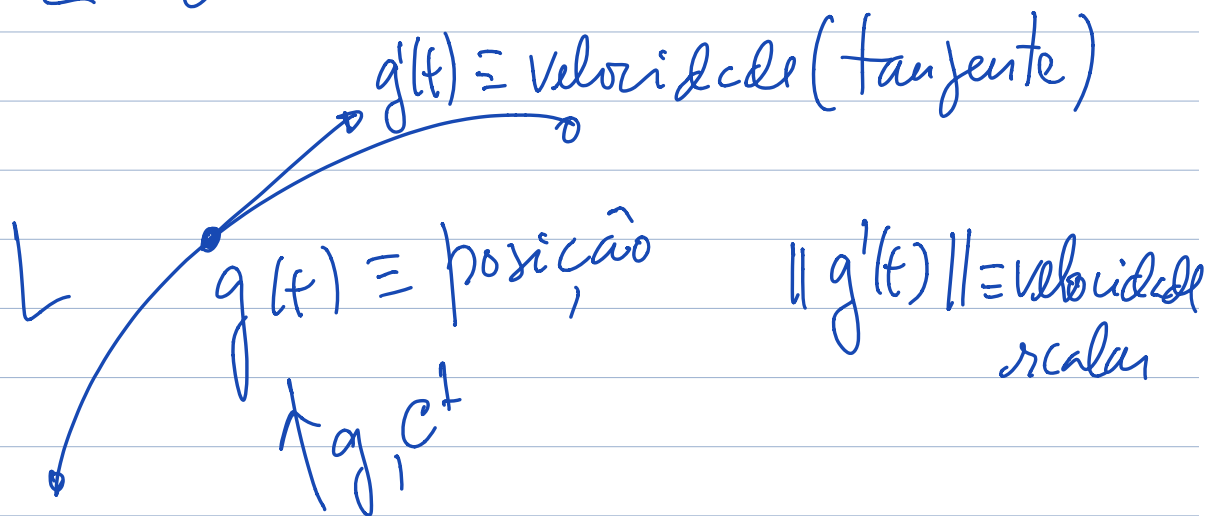 g'(t) ≡ velocidade (tangente)
L
g(t) ≡ posição
||g'(t)|| ≡ velocidade
escalar
↑ g, C¹